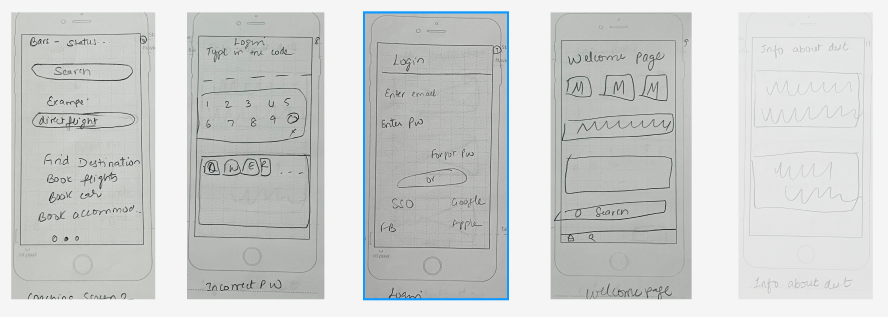 Bars - Status..
Search
Example:
direct flight
Find Destination
Book flights
Book car
Book accommod..
Coaching Screen 2
Login
8
Type in the code
1 2 3 4 5
6 7 8 9
Q W E R ...
Incorrect PW
Login
7
Enter email
Enter PW
Forgot PW
or
SSO Google
FB Apple
Login
9
Welcome page
M M M
Search
Welcome page
Info about dest
Info about dest